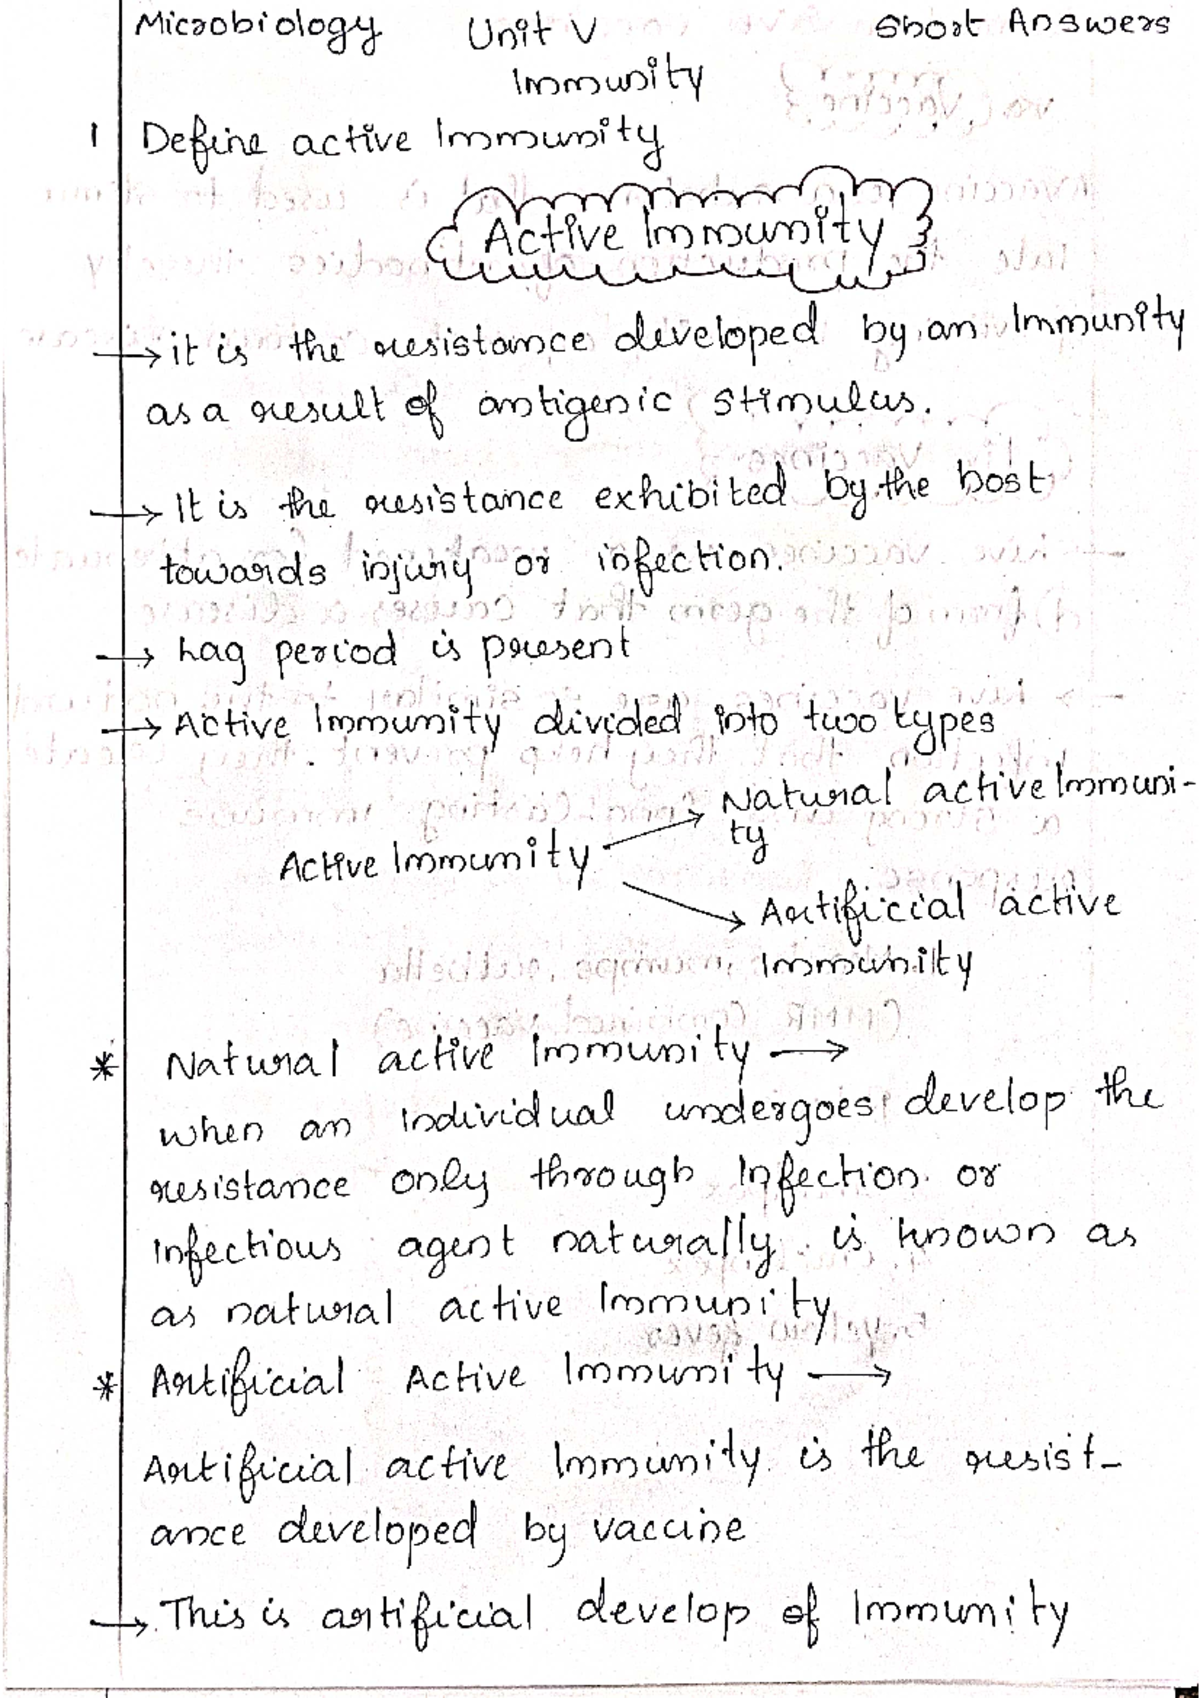 Microbiology Unit V Short Answers
Immunity
1 Define active Immunity
Active Immunity
→ it is the resistance developed by an Immunity
as a result of antigenic stimulus.
→ It is the resistance exhibited by the host
towards injury or infection.
→ Lag period is present
→ Active Immunity divided into two types
Natural active Immuni-
ty
Active Immunity
Artificial active
Immunity
* Natural active Immunity →
when an individual undergoes develop the
resistance only through Infection or
infectious agent naturally is known as
as natural active Immunity
* Artificial Active Immunity →
Artificial active Immunity is the resist-
ance developed by vaccine
→ This is artificial develop of Immunity